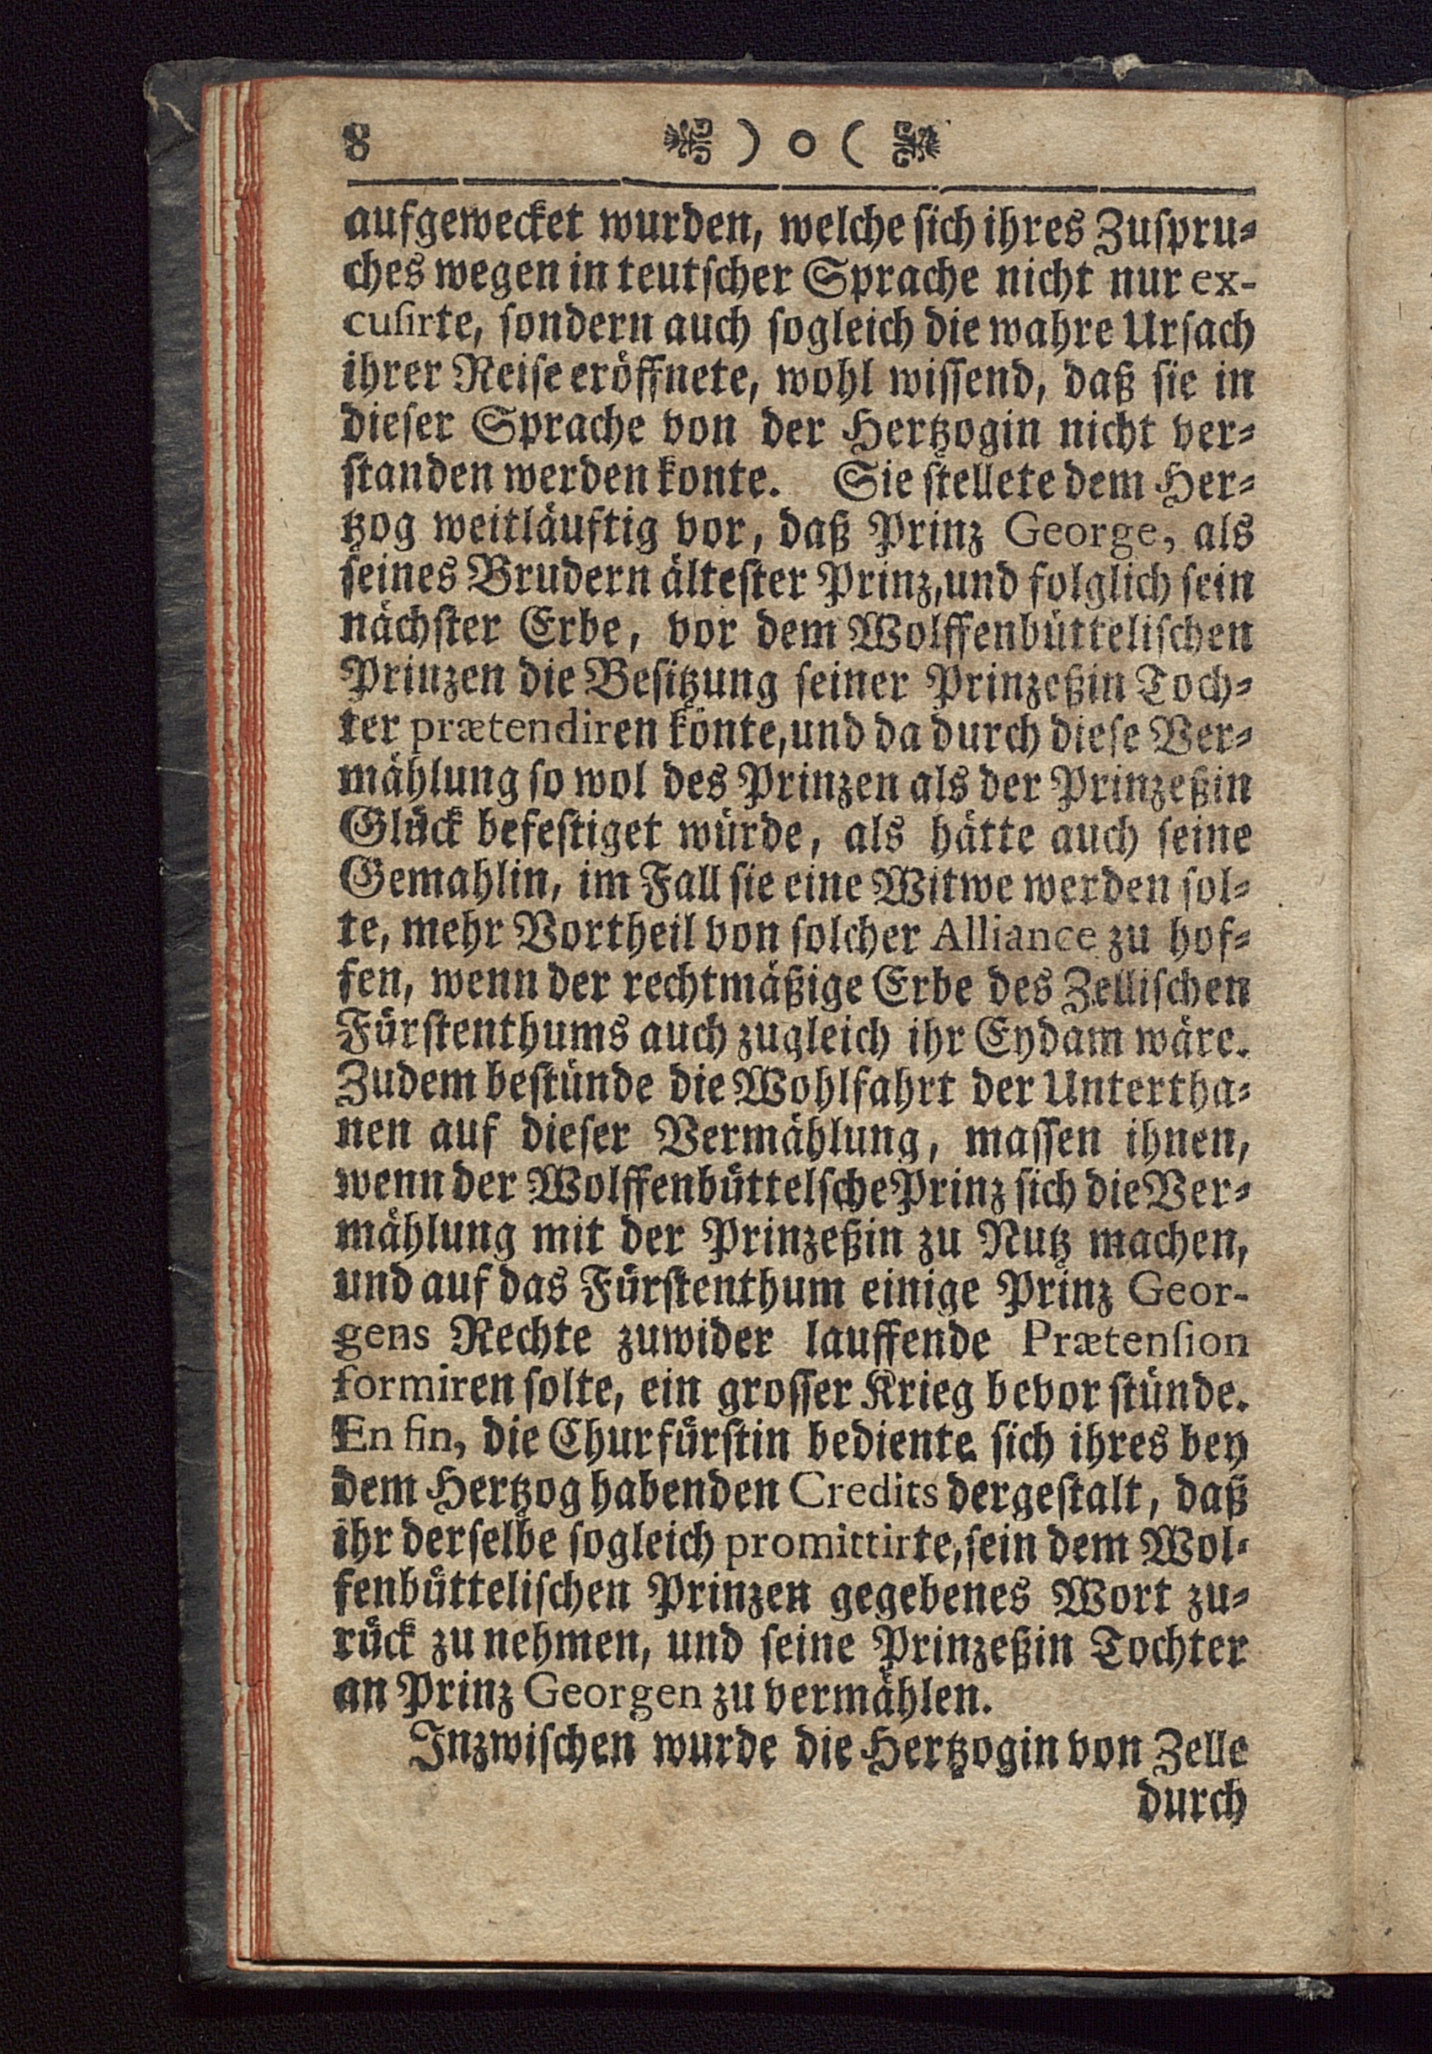 8 ) o (
aufgewecket wurden, welche sich ihres Zuspru-
ches wegen in teutscher Sprache nicht nur ex-
cusirte, sondern auch sogleich die wahre Ursach
ihrer Reise eröffnete, wohl wissend, daß sie in
dieser Sprache von der Hertzogin nicht ver-
standen werden konte. Sie stellete dem Her-
tzog weitläuftig vor, daß Prinz George, als
seines Brudern ältester Prinz, und folglich sein
nächster Erbe, vor dem Wolffenbüttelischen
Prinzen die Besitzung seiner Prinzeßin Toch-
ter prætendiren könte, und da durch diese Ver-
mählung so wol des Prinzen als der Prinzeßin
Glück befestiget würde, als hätte auch seine
Gemahlin, im Fall sie eine Witwe werden sol-
te, mehr Vortheil von solcher Alliance zu hof-
fen, wenn der rechtmäßige Erbe des Zellischen
Fürstenthums auch zugleich ihr Eydam wäre.
Zudem bestünde die Wohlfahrt der Untertha-
nen auf dieser Vermählung, massen ihnen,
wenn der Wolffenbüttelsche Prinz sich die Ver-
mählung mit der Prinzeßin zu Nutz machen,
und auf das Fürstenthum einige Prinz Geor-
gens Rechte zuwider lauffende Prætension
formiren solte, ein grosser Krieg bevor stünde.
En fin, die Churfürstin bediente sich ihres bey
dem Hertzog habenden Credits dergestalt, daß
ihr derselbe sogleich promittirte, sein dem Wol-
fenbüttelischen Prinzen gegebenes Wort zu-
rück zu nehmen, und seine Prinzeßin Tochter
an Prinz Georgen zu vermählen.
Inzwischen wurde die Hertzogin von Zelle
durch